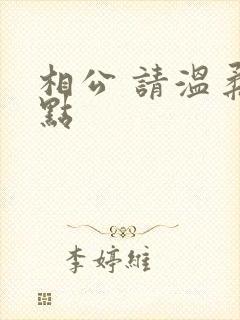 相公 請溫柔
點
李婷維